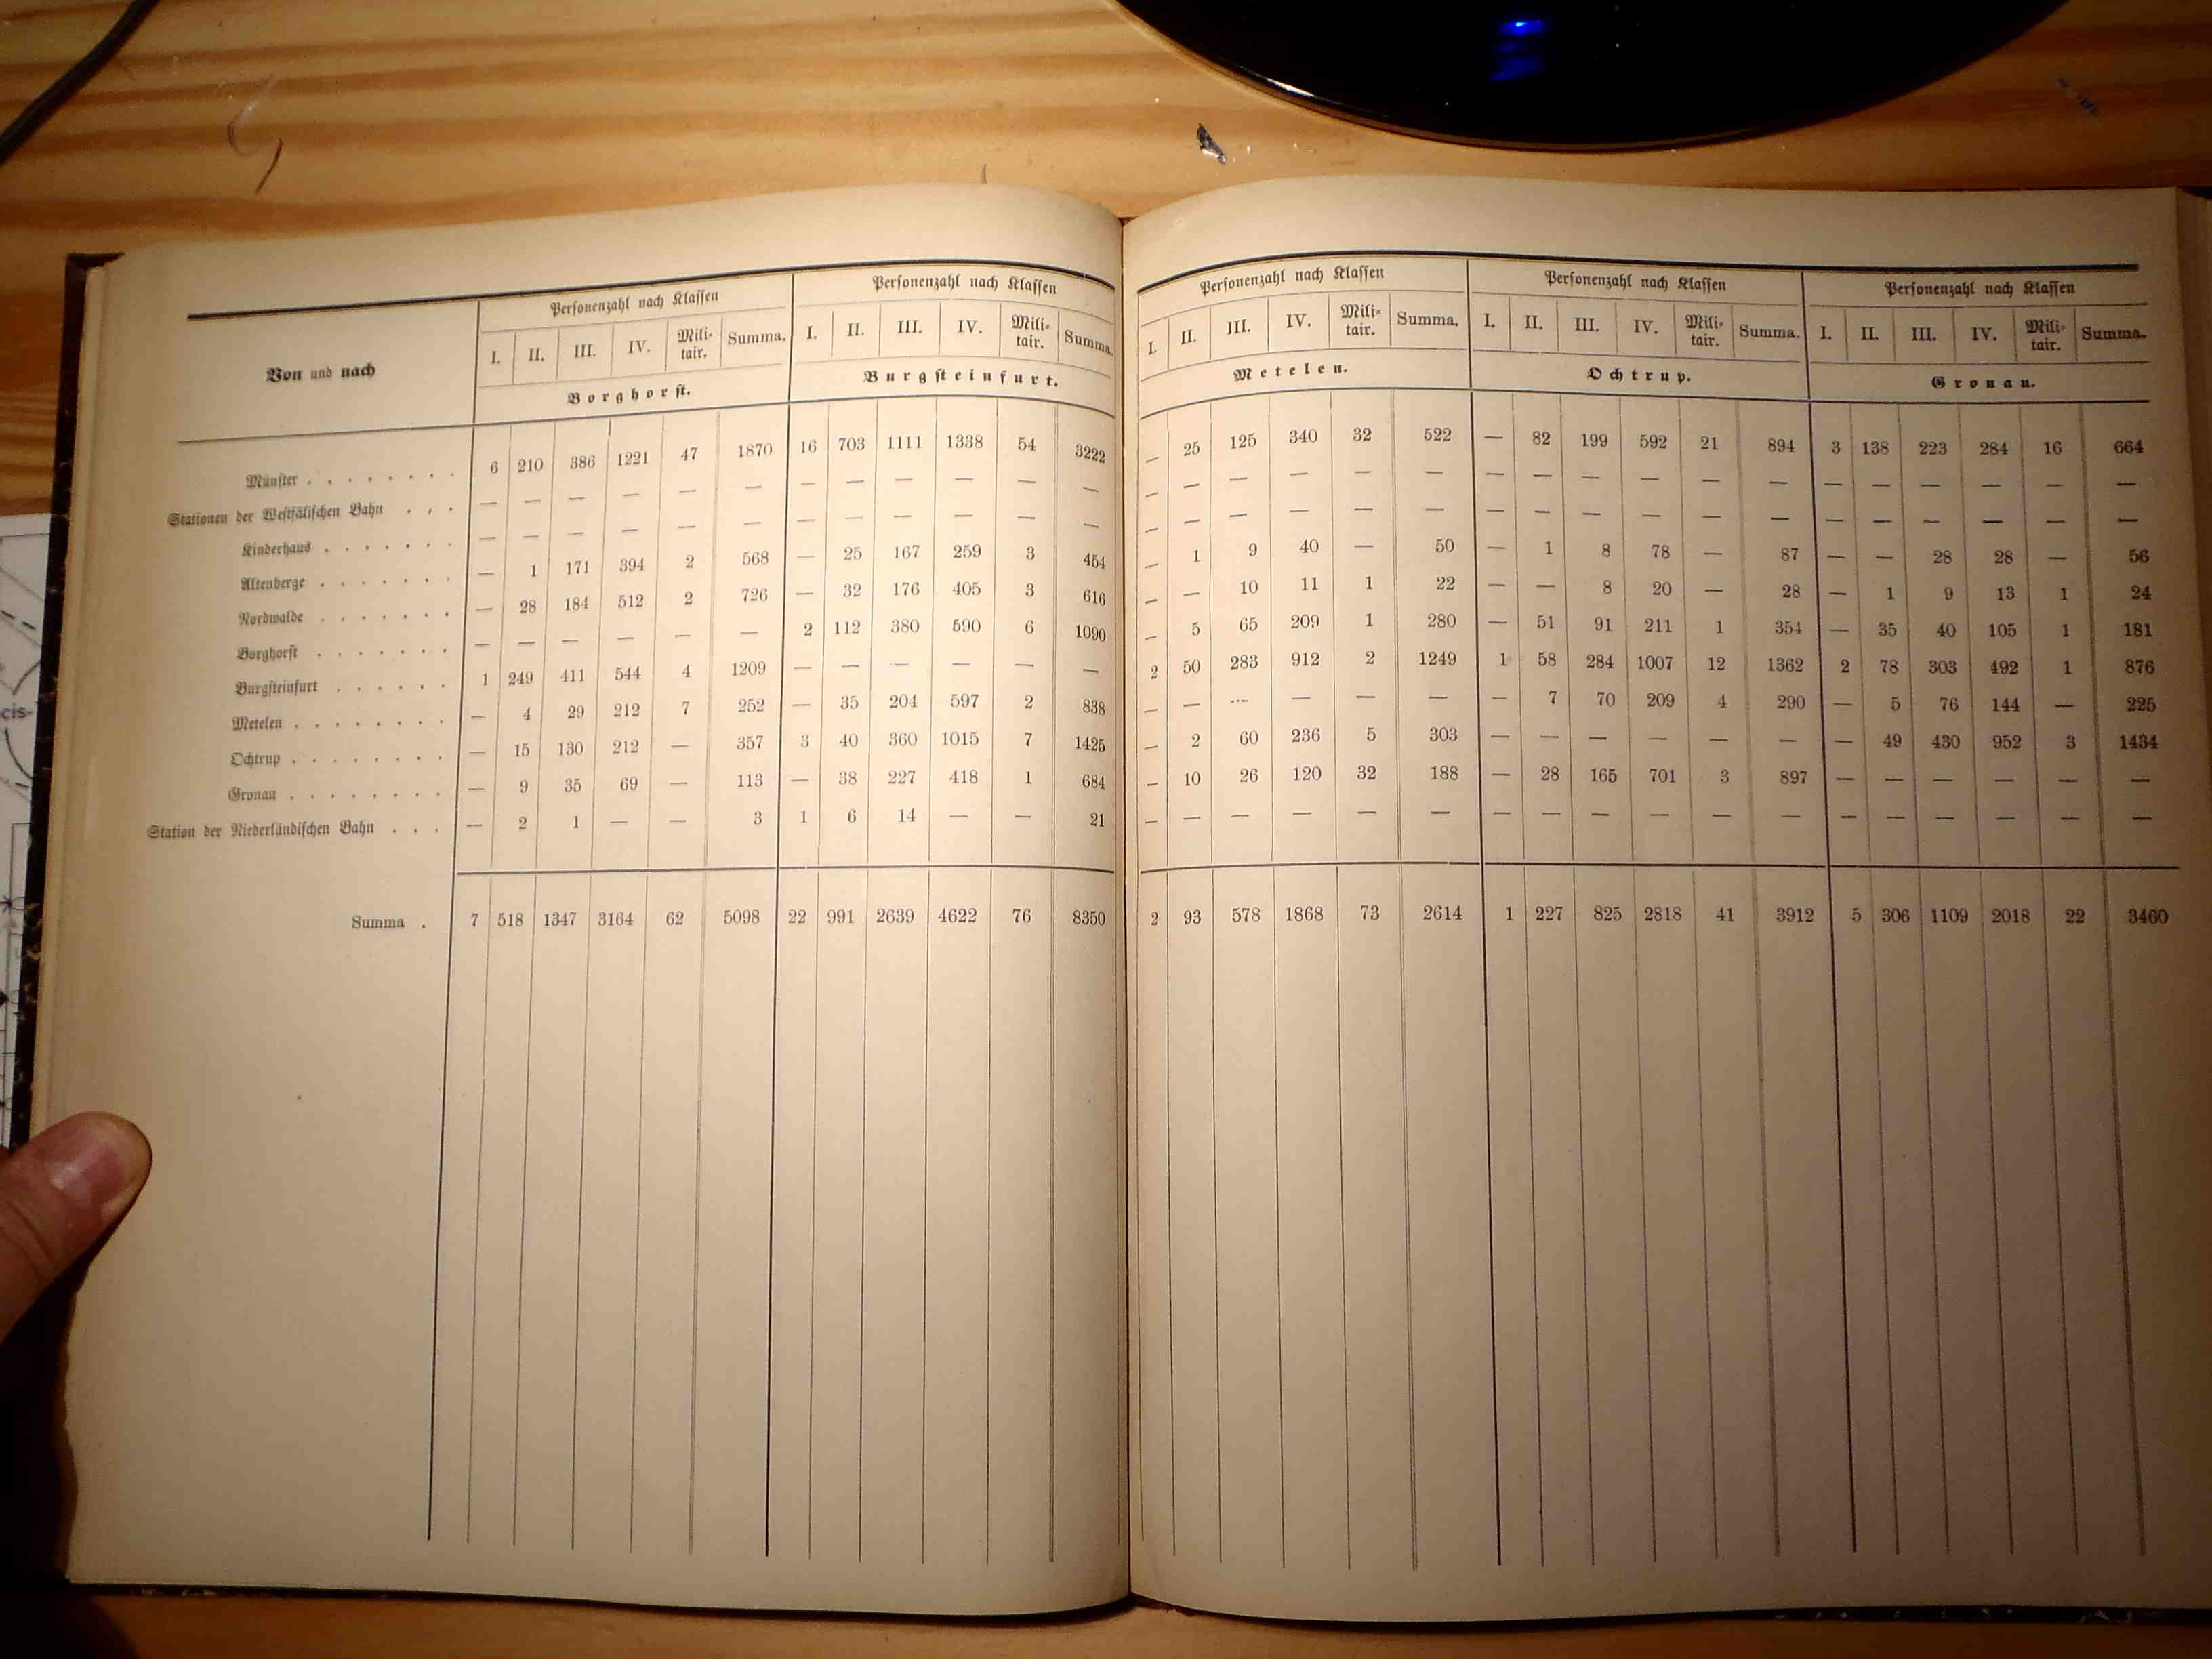 Personenzahl nach Klassen Personenzahl nach Klassen Personenzahl nach Klassen Personenzahl nach Klassen Personenzahl nach Klassen
Von und nach I. II. III. IV. Mili-tair. Summa. I. II. III. IV. Mili-tair. Summa. I. II. III. IV. Mili-tair. Summa. I. II. III. IV. Mili-tair. Summa. I. II. III. IV. Mili-tair. Summa.
Borghorst. Burgsteinfurt. Metelen. Ochtrup. Gronau.
Münster . . . . . . . . 6 210 386 1221 47 1870 16 703 1111 1338 54 3222 — 25 125 340 32 522 — 82 199 592 21 894 3 138 223 284 16 664
Stationen der Westfälischen Bahn . . . — — — — — — — — — — — — — — — — — — — — — — — — — — — — — —
Kinderhaus . . . . . . . — — — — — — — — — — — — — — — — — — — — — — — — — — — — — —
Altenberge . . . . . . . — 1 171 394 2 568 — 25 167 259 3 454 — 1 9 40 — 50 — 1 8 78 — 87 — — 28 28 — 56
Nordwalde . . . . . . . — 28 184 512 2 726 — 32 176 405 3 616 — — 10 11 1 22 — — 8 20 — 28 — 1 9 13 1 24
Borghorst . . . . . . . — — — — — — 2 112 380 590 6 1090 — 5 65 209 1 280 — 51 91 211 1 354 — 35 40 105 1 181
Burgsteinfurt . . . . . . 1 249 411 544 4 1209 — — — — — — 2 50 283 912 2 1249 1 58 284 1007 12 1362 2 78 303 492 1 876
Metelen . . . . . . . . — 4 29 212 7 252 — 35 204 597 2 838 — — — — — — — 7 70 209 4 290 — 5 76 144 — 225
Ochtrup . . . . . . . . — 15 130 212 — 357 3 40 360 1015 7 1425 — 2 60 236 5 303 — — — — — — — 49 430 952 3 1434
Gronau . . . . . . . . — 9 35 69 — 113 — 38 227 418 1 684 — 10 26 120 32 188 — 28 165 701 3 897 — — — — — —
Station der Niederländischen Bahn . . . — 2 1 — — 3 1 6 14 — — 21 — — — — — — — — — — — — — — — — — —
Summa . 7 518 1347 3164 62 5098 22 991 2639 4622 76 8350 2 93 578 1868 73 2614 1 227 825 2818 41 3912 5 306 1109 2018 22 3460
cis-